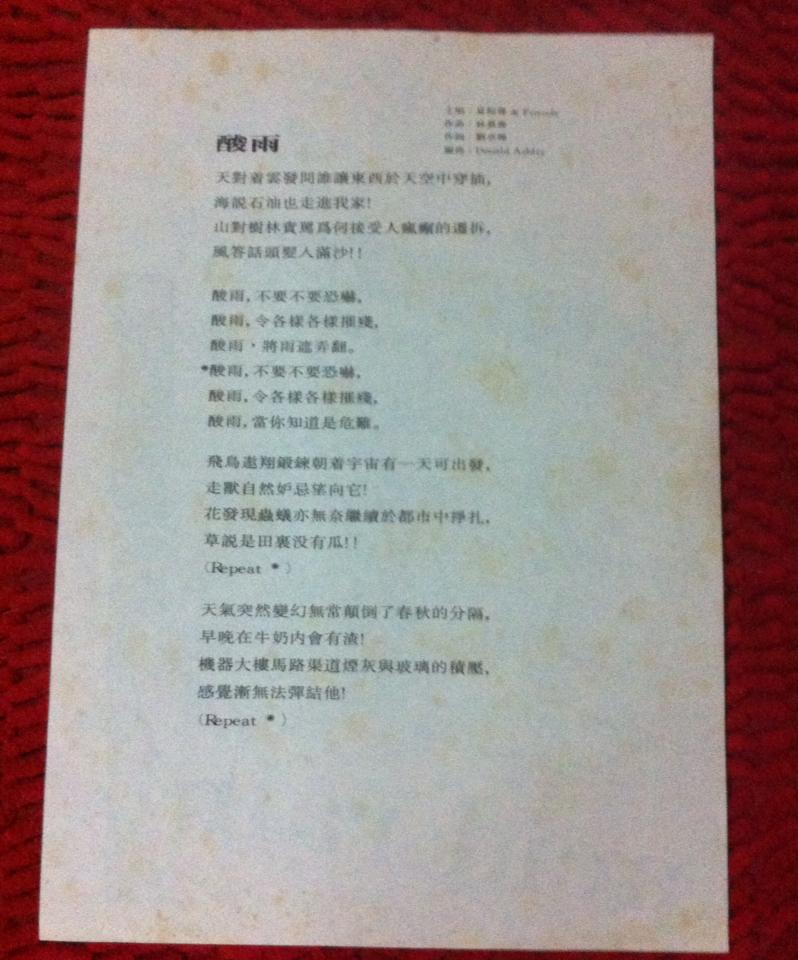 酸雨
主唱：
作曲：
作詞：
編曲：Donald Ashley
天對着雲發問誰讓東西於天空中穿插,
海説石油也走進我家!
山對樹林責駡爲何接受人瘋癲的遷拆,
風答話頭髮入滿沙!!
酸雨, 不要不要恐嚇,
酸雨, 令各樣各樣摧殘,
酸雨，將雨遮弄翻。
*酸雨, 不要不要恐嚇,
酸雨, 令各樣各樣摧殘,
酸雨, 當你知道是危難。
飛鳥遨翔鍛鍊朝着宇宙有一天可出發,
走獸自然妒忌望向它!
花發現蟲蟻亦無奈繼續於都市中掙扎,
草説是田裏没有瓜!!
(Repeat *)
天氣突然變幻無常顛倒了春秋的分隔,
早晚在牛奶内會有渣!
機器大樓馬路渠道煙灰與玻璃的積壓,
感覺漸無法彈結他!
(Repeat *)